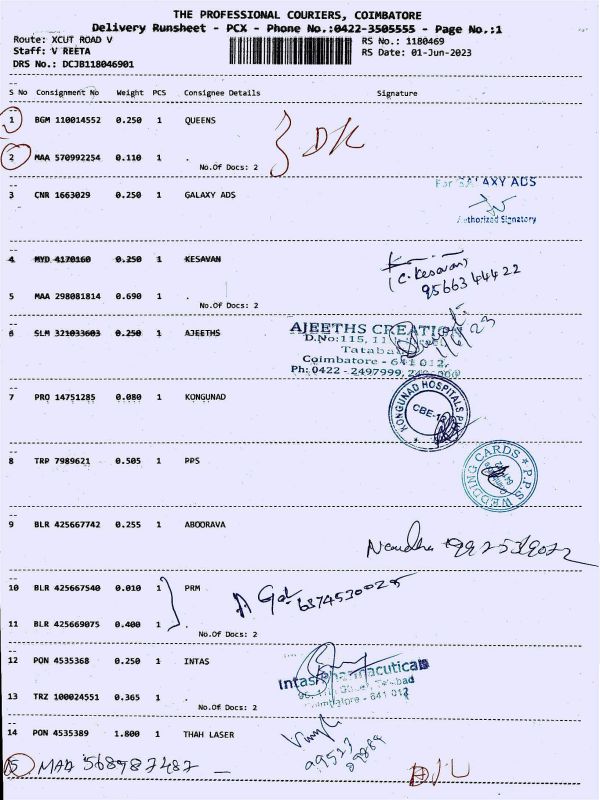 THE PROFESSIONAL COURIERS, COIMBATORE
Delivery Runsheet - PCX - Phone No.:0422-3505555 - Page No.:1
Route: XCUT ROAD V RS No.: 1180469
Staff: V REETA RS Date: 01-Jun-2023
DRS No.: DCJB118046901
S No Consignment No Weight PCS Consignee Details Signature
1 BGM 110014552 0.250 1 QUEENS
2 MAA 570992254 0.110 1 .
No.Of Docs: 2
3 CNR 1663029 0.250 1 GALAXY ADS
For GALAXY ADS
Authorized Signatory
4 MYD 4170160 0.250 1 KESAVAN
(C. Kesavan)
9566344422
5 MAA 298081814 0.690 1 .
No.Of Docs: 2
6 SLM 321033603 0.250 1 AJEETHS
AJEETHS CREATION
D.No:115, 11
Coimbatore - 641 012.
Ph: 0422 - 2497999,
7 PRO 14751285 0.080 1 KONGUNAD
KONGUNAD HOSPITALS
CBE-12
8 TRP 7989621 0.505 1 PPS
P.P.S. WEDDING CARDS
9 BLR 425667742 0.255 1 ABOORAVA
10 BLR 425667540 0.010 1 PRM
11 BLR 425669075 0.400 1
No.Of Docs: 2
12 PON 4535368 0.250 1 INTAS
Intas Pharmaceuticals
13 TRZ 100024551 0.365 1 .
No.Of Docs: 2
14 PON 4535389 1.800 1 THAH LASER
15 MAA 568987487